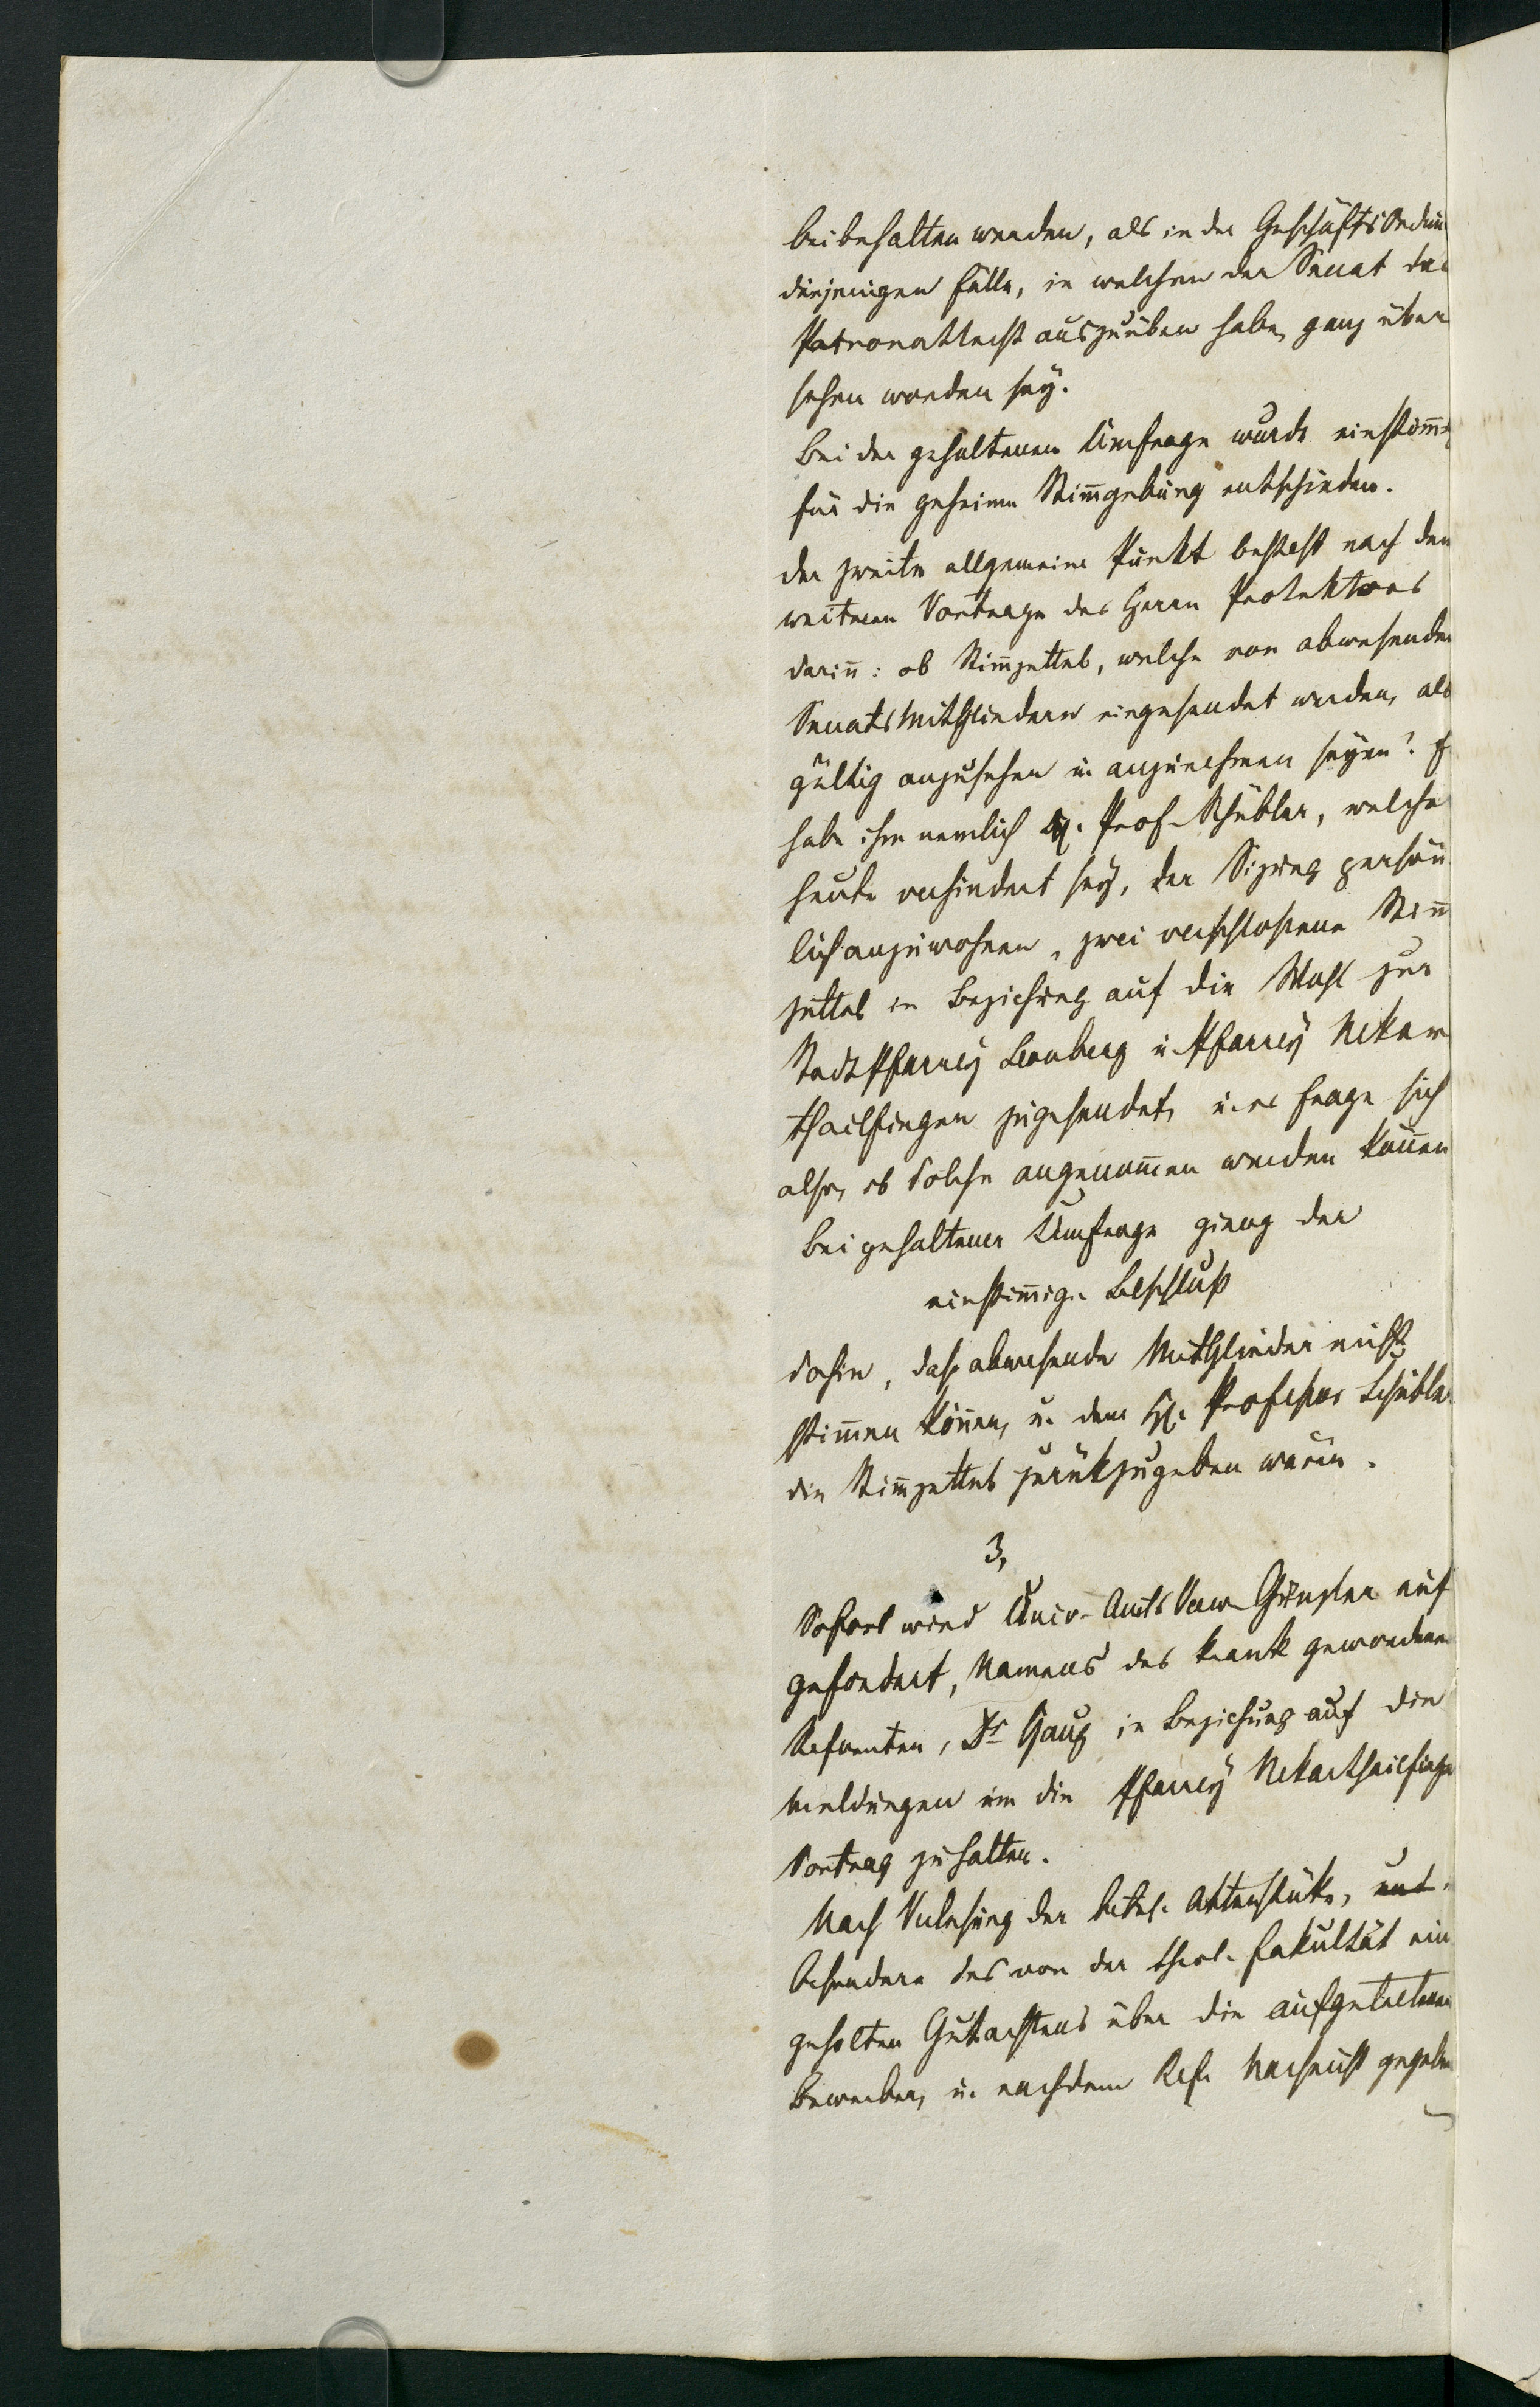 beibehalten werden, als in der Geschäftsordnun
diejenigen Fälle, in welchen der Senat das
Patronatrecht auszuüben habe, ganz über
sehen worden sey.
Bei der gehaltenen Umfrage wurde einstim̄ig
für die geheime Stim̄gebung entschieden.
Der zweite allgemeine Punkt besteht nach dem
weiteren Vortrage des Herrn Prorektors
darin̄: ob Stim̄zettel, welche von abwesenden
Senats Mitgliedern eingesendet werden, als
gültig anzusehen u. anzunehmen seyen? Es
habe ihm nemlich H. Prof. Schübler, welcher
heute verhindert sey, der Sizung persön
lich anzuwohnen, zwei verschlossene Stim̄
zettel in Beziehung auf die Wahl zur
Stadt Pfarrey Leonberg u. Pfarrey Nekar
thailfingen zugesendet, u. es frage sich
also, ob solche angenom̄en werden kön̄en
Bei gehaltener Umfrage gieng der
einstim̄ige Beschluß
dahin, daß abwesende Mitglieder nicht
stim̄en kön̄en, u. dem H. Professor Schübler
die Stim̄zettel zurükzugeben wären.
3,
Sofort wird Univ. Amts Verw. Günzler auf
gefordert, Namens des krank gewordenen
Referenten, Dr Haug in Beziehung auf die
Meldungen um die Pfarrey Nekarthailfingen
Vortrag zu halten.
Nach Verlesung der betref. Aktenstüke,
besondere des von der theol. Fakultät ein
geholten Gutachtens über die aufgetretenen
Bewerber, u. nachdem Ref. Nachricht gegeben